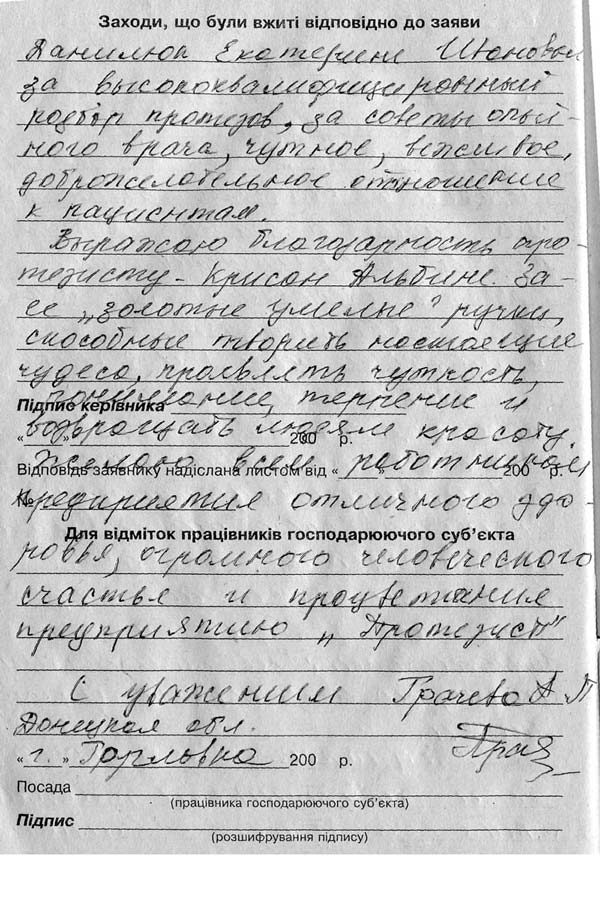 Заходи, що були вжиті відповідно до заяви
Данилюк Екатерине
за высококвалифицированный
подбор протезов, за советы опыт-
ного врача, чуткое, вежливое,
доброжелательное отношение
к пациентам.
Выражаю благодарность про-
тезисту - Крисон Альбине за
ее „золотые умелые" ручки,
способные творить настоящие
чудеса, проявлять чуткость,
Підпис керівника
понимание, терпение и
« » 200 р.
возвращать людям красоту.
Відповідь заявнику надіслана листом від « » 200 р.
Желаю всем работникам
№
предприятия отличного здо-
Для відміток працівників господарюючого суб'єкта
ровья, огромного человеческого
счастья и процветания
предприятию „Протезист"
С уважением Грачева А.П
Донецкая обл.
« г. » Горловка 200 р.
Посада
(працівника господарюючого суб'єкта)
Підпис
(розшифрування підпису)